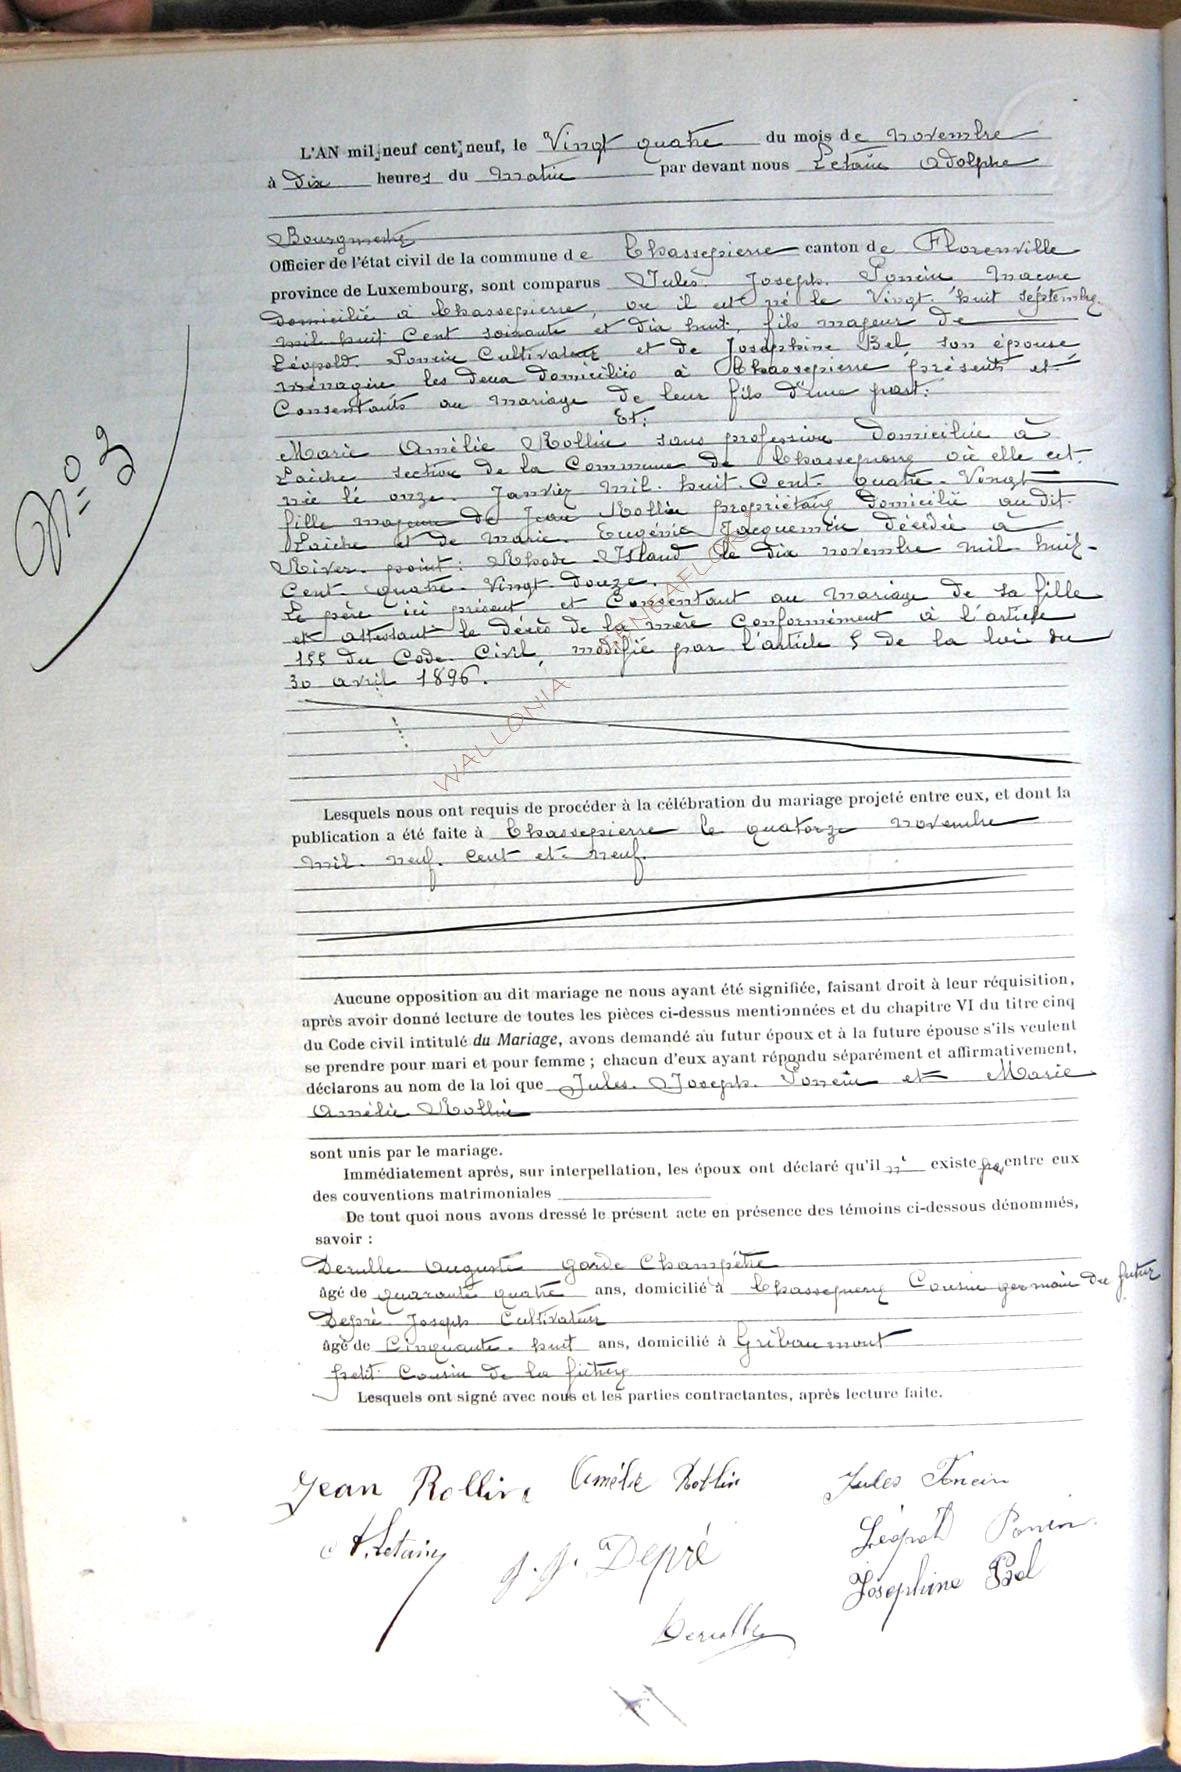 L'AN mil neuf cent neuf, le Vingt quatre du mois de novembre
à Dix heures du Matin par devant nous Letain Adolphe
Bourgmestre
Officier de l'état civil de la commune de Chassepierre canton de Florenville
province de Luxembourg, sont comparus Jules Joseph Poncin
domicilié à Chassepierre, ou il est né le Vingt huit septembre
mil huit Cent soixante et dix huit, fils majeur de
Léopold Poncin Cultivateur et de Joséphine Bel son épouse
ménagère les deux domiciliés à Chassepierre présents et
Consentants au mariage de leur fils d'une part.
Et:
Marie Amélie Rollin sans profession domiciliée à
Laiche section de la Commune de Chassepierre où elle est
née le onze Janvier mil huit Cent quatre Vingt
fille majeure de Jean Rollin propriétaire domicilié au dit
Laiche et de Marie Eugénie Jacquemin décédée à
River point: Rhode Island le dix novembre mil huit
Cent quatre Vingt douze.
Le père ici présent et Consentant au mariage de sa fille
et attestant le décès de la mère Conformément à l'article
155 du Code Civil, modifié par l'article 5 de la loi du
30 avril 1896.
N° 2
WALLONIA GENEAFLORE
Lesquels nous ont requis de procéder à la célébration du mariage projeté entre eux, et dont la
publication a été faite à Chassepierre le quatorze novembre
mil neuf cent et neuf.
Aucune opposition au dit mariage ne nous ayant été signifiée, faisant droit à leur réquisition,
après avoir donné lecture de toutes les pièces ci-dessus mentionnées et du chapitre VI du titre cinq
du Code civil intitulé du Mariage, avons demandé au futur époux et à la future épouse s'ils veulent
se prendre pour mari et pour femme ; chacun d'eux ayant répondu séparément et affirmativement,
déclarons au nom de la loi que Jules Joseph Poncin et Marie
Amélie Rollin
sont unis par le mariage.
Immédiatement après, sur interpellation, les époux ont déclaré qu'il n' existe pas entre eux
des conventions matrimoniales
De tout quoi nous avons dressé le présent acte en présence des témoins ci-dessous dénommés,
savoir :
Derulle Auguste garde Champêtre
âgé de quarante quatre ans, domicilié à Chassepierre Cousin germain du futur
Depré Joseph Cultivateur
âgé de Cinquante huit ans, domicilié à Gribaumont
petit Cousin de la future
Lesquels ont signé avec nous et les parties contractantes, après lecture faite.
Jean Rollin Amélie Rollin Jules Poncin
A. Letain J. J. Depré Léopold Poncin
Joséphine Bel
Derulle